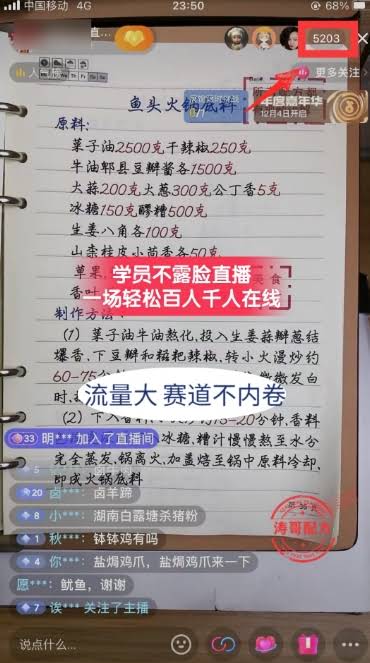 中国移动 4G 23:50 68
直...
5203
人气
更多关注
年度嘉年华
12月4日开启
鱼头火锅底料:
原料:
菜子油2500克干辣椒250克
牛油郫县豆瓣酱各1500克
大蒜200克大葱300克公丁香5克
冰糖150克醪糟500克
生姜八角各100克
山柰桂皮小茴香各50克
草果
香叶
美食
学员不露脸直播
一场轻松百人千人在线
制作方法:
(1) 菜子油牛油熬化,投入生姜蒜瓣葱结
爆香,下豆瓣和糍粑辣椒,转小火漫炒约
60-75分
微微发白
时,
流量大 赛道不内卷
(2) 下入香料
15-20分钟,香料
33 明*** 加入了直播间
冰糖,糟汁慢慢熬至水分
完全蒸发,锅离火,加盖焐至锅中原料冷却,
即成火锅底料
20 卤***: 卤羊蹄
8 小***: 湖南白露塘杀猪粉
秋***: 钵钵鸡有吗
4 你***: 盐焗鸡爪,盐焗鸡爪来一下
愿***: 鱿鱼,谢谢
7 诶*** 关注了主播
第 36 页
涛哥配方
说点什么...